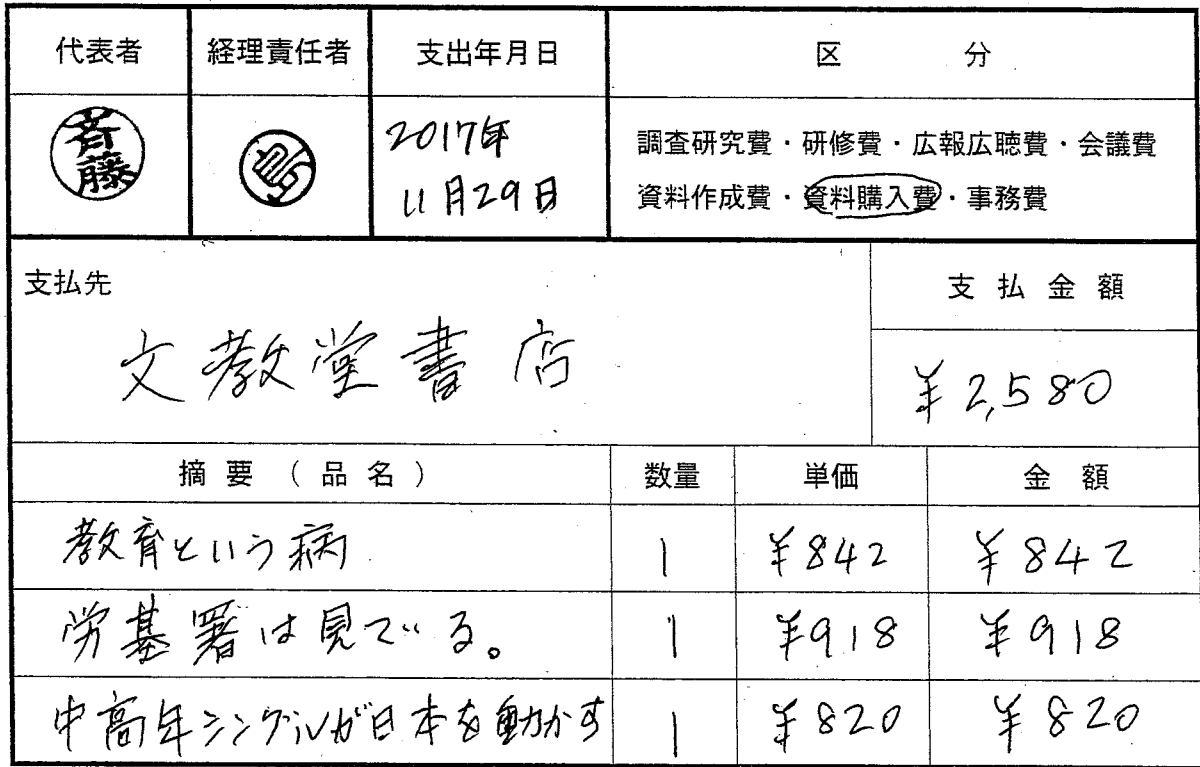 代表者 経理責任者 支出年月日 区 分
斉藤 2017年 調査研究費・研修費・広報広聴費・会議費
11月29日 資料作成費・資料購入費・事務費
支払先 支 払 金 額
文教堂書店 ¥2,580
摘 要 （ 品 名 ） 数量 単価 金 額
教育という病 1 ¥842 ¥842
労基署は見ている。 1 ¥918 ¥918
中高年シングルが日本を動かす 1 ¥820 ¥820